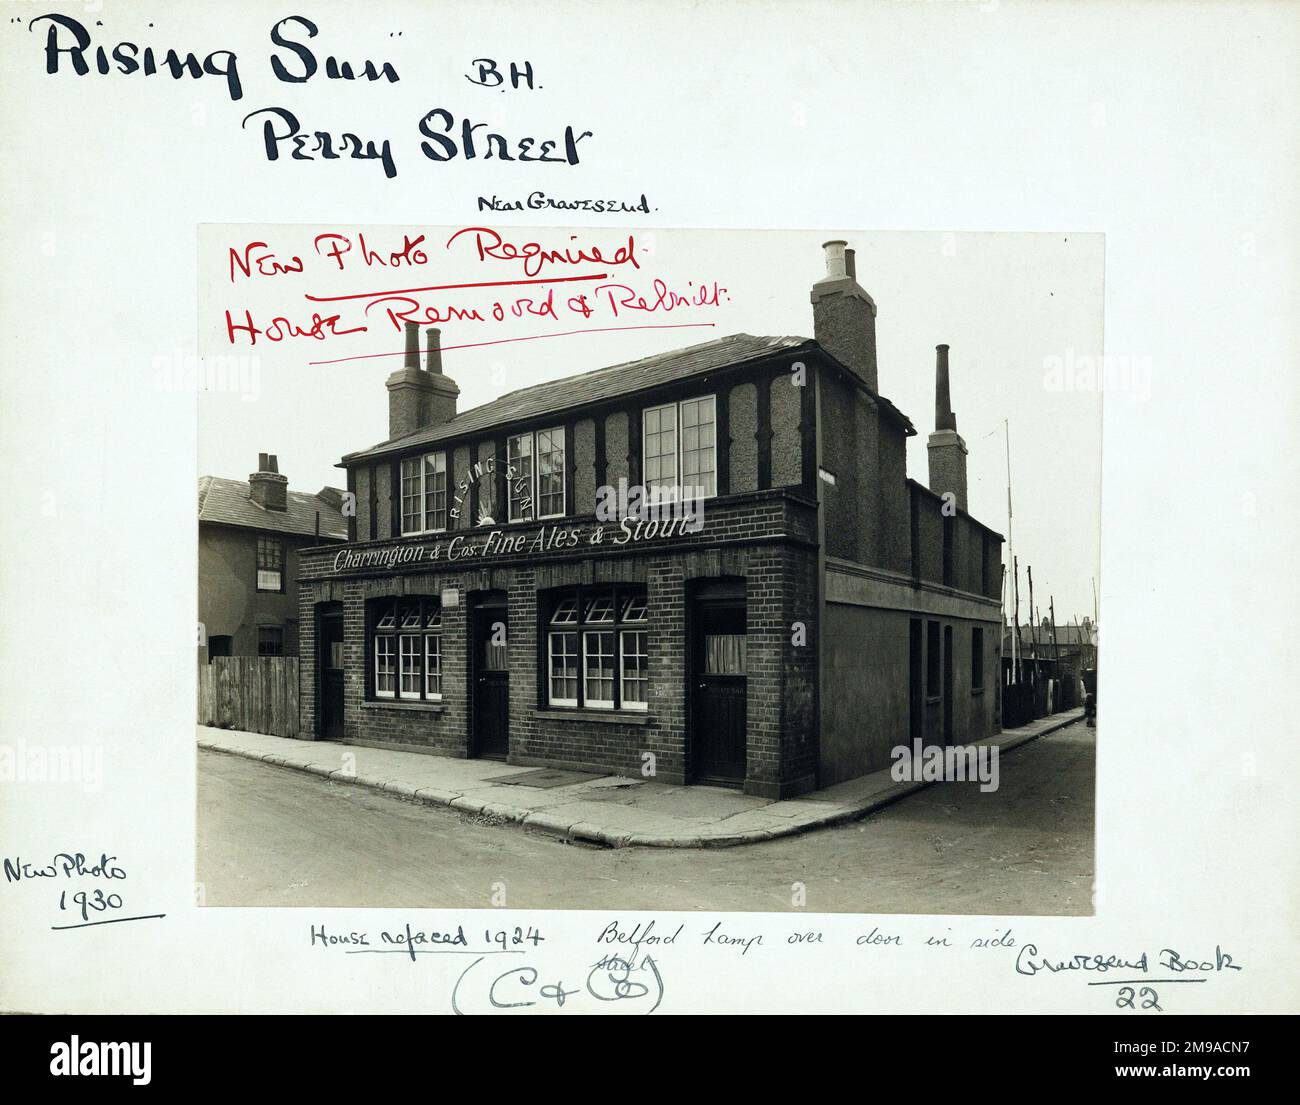 "Rising Sun" B.H.
Perry Street
Near Gravesend.
New Photo Required.
House Removed & Rebuilt.
RISING SUN
Charrington & Cos. Fine Ales & Stout.
PRIVATE BAR
New Photo
1930
House refaced 1924
Belford Lamp over door in side
street
(C & Co)
Gravesend Book
22
alamy
Image ID: 2M9ACN7
www.alamy.com